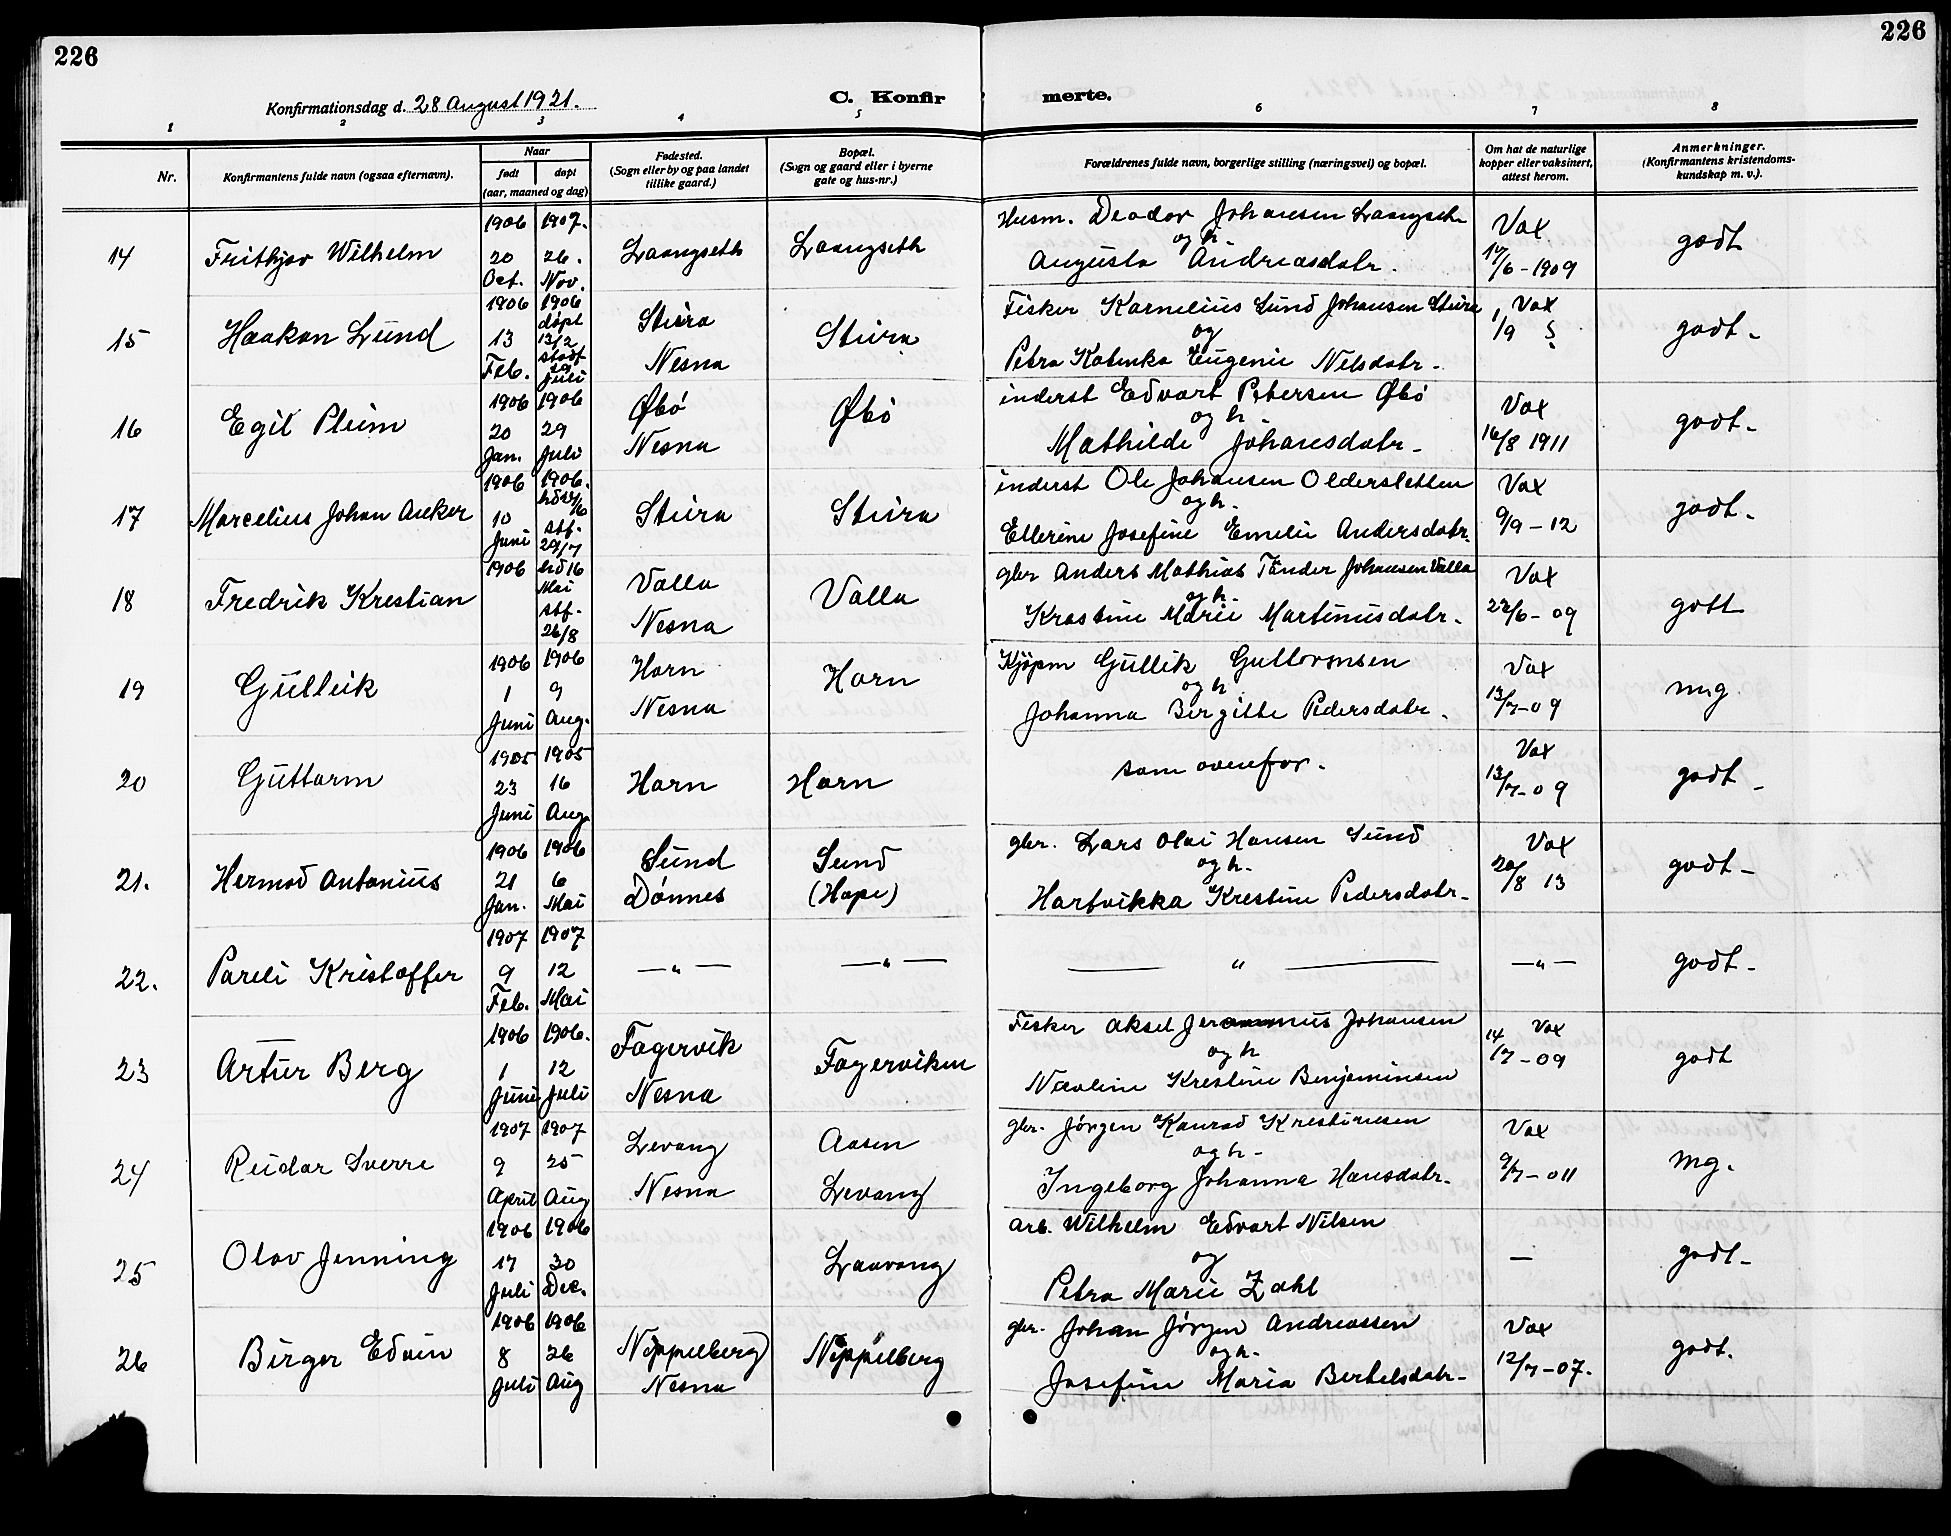 226
226
Konfirmationsdag d. 28 August 1921.
C. Konfir
merte.
1 2 3 4 5 6 7 8
Nr.
Konfirmantens fulde navn (ogsaa efternavn).
Naar
født døpt
(aar, maaned og dag)
Fødested.
(Sogn eller by og paa landet
tillike gaard.)
Bopæl.
(Sogn og gaard eller i byerne
gate og hus-nr.)
Forældrenes fulde navn, borgerlige stilling (næringsvei) og bopæl.
Om hat de naturlige
kopper eller vaksinert,
attest herom.
Anmerkninger.
(Konfirmantens kristendoms-
kundskap m. v.).
14 Frithjov Wilhelm 1906 20 Oct. 1907. 26. Nov. Laangseth Laangseth
Husm. Deodor Johansen Laangseth
og h.
Augusta Andreasdatr.
Vax 17/6-1909 godt
15 Haakon Lund 1906 13 Feb. 1906 døpt 13/2 stadf. 29 Juli Stiira Nesna Stiira
Fisker Kornelius Lund Johansen Stiira
og
Petra Katinka Eugenie Nelsdatr-
Vax 1/9 godt-
16 Egil Pleim 1906 20 Jan. 1906 29 Juli Øbö Nesna Øbö
inderst Edvart Petersen Øbö
og h
Mathilde Johansdatr-
Vax 16/8 1911 godt-
17 Marcelius Johan Anker 1906 10 Juni 1906. stf. 29/7 Stiira Stiira
inderst Ole Johansen Oldersletten
og h.
Ellerine Josefine Emelie Andersdatr.
Vax 9/9-12 godt-
18 Fredrik Krestian 1906 hd 16 Mai stf. 26/8 Valla Nesna Valla
gbr Anders Mathias Tönder Johansen Valla
og h.
Krestine Marie Martinusdatr.
Vax 22/6-09 gott
19 Gullik 1906 1 Juni 1906 9 Aug. Horn Nesna Horn
Kjöpm Gullik Guttormsen
og h
Johanna Bergitte Pedersdatr.
Vax 13/7-09 mg
20 Guttorm 1905 23 Juni 1905 16 Aug. Horn Horn
som ovenfor.
Vax 13/7-09 godt-
21. Hermod Antonius 1906 21 Jan. 1906 6 Mai Sund Dönnes Sund (Hope)
gbr. Lars Olai Hansen Sund
og h.
Hartvikka Krestine Pedersdatr-
Vax 20/8 13 godt-
22. Pareli Kristoffer 1907 9 Feb. 1907 12 Mai —"— —"—
—"—
—"— godt-
23 Artur Berg 1906 1 Juni 1906. 12 Juli Fagervik Nesna Fagerviken
Fisker Aksel Johansen
og h
Nævline Krestine Benjaminsen
Vax 14/7-09 godt
24 Reidar Sverre 1907 9 April 1907 25 Aug Levang Nesna Aasen Levang
gbr. Jörgen Konrad Krestinesen
og h-
Ingeborg Johanna Hansdatr.
Vax 9/7-011 mg.
25 Olav Jenning 1906 17 Juli 1906 30 Dec. Laavong
arb. Wilhelm Edvart Nilsen
og
Petra Marie Zahl
— godt-
26 Birger Edvin 1906 8 Juli 1906 26 Aug Nippelberg Nesna Nippelberg
gbr. Johan Jörgen Andreassen
og h.
Josefine Maria Bertelsdatr-
Vax 12/7-07. godt.